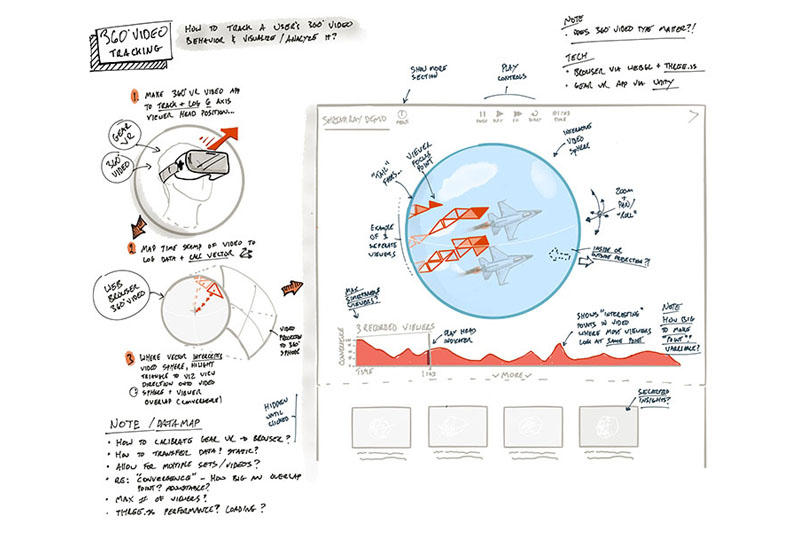 360° VIDEO
TRACKING
HOW TO TRACK A USER'S 360° VIDEO
BEHAVIOR & VISUALIZE/ANALYZE IT?
1. MAKE 360° VR VIDEO APP
TO TRACK + LOG 6 AXIS
VIEWER HEAD POSITION...
GEAR
VR
360°
VIDEO
2 MAP TIME STAMP OF VIDEO TO
LOG DATA + CALC VECTOR
WEB
BROWSER
360° VIDEO
VIDEO
PROJECTION
TO 360°
SPHERE
3 WHERE VECTOR INTERSECTS
VIDEO SPHERE, HILIGHT
TRIANGLE TO VIZ VIEW
DIRECTION ONTO VIDEO
SPHERE + VIEWER
OVERLAP (CONVERGENCE)
NOTE / DATAMAP
• HOW TO CALIBRATE GEAR VR → BROWSER?
• HOW TO TRANSFER DATA? STATIC?
• ALLOW FOR MULTIPLE SETS/VIDEOS?
• RE: "CONVERGENCE" - HOW BIG AN OVERLAP
POINT? ADJUSTABLE?
• MAX # OF VIEWERS?
• THREE.JS PERFORMANCE? LOADING?
HIDDEN
UNTIL
CLICKED
SHOW MORE
SECTION
PLAY
CONTROLS
NOTE
• DOES 360° VIDEO TYPE MATTER?!
TECH
• BROWSER VIA WEBGL + THREE.JS
• GEAR VR APP VIA UNITY
DEMO
PAUSE PLAY FF
TIME
INTERACTIVE
VIDEO
SPHERE
"TAIL"
FADES...
VIEWER
FOCUS
POINT
EXAMPLE
OF 2
SEPERATE
VIEWERS
ZOOM
+
PAN/
"ROLL"
INSIDE OR
OUTSIDE PROJECTION?!
MAX
SIMULTANEOUS
VIEWERS?
3 RECORDED VIEWERS
PLAY HEAD
INDICATOR
SHOWS "INTERESTING"
POINTS IN VIDEO
WHERE MOST VIEWERS
LOOK AT SAME POINT
NOTE
HOW BIG
TO MAKE
"POINT"?
VARIABLE?
CONVERGENCE
TIME
MORE
INSIGHTS?